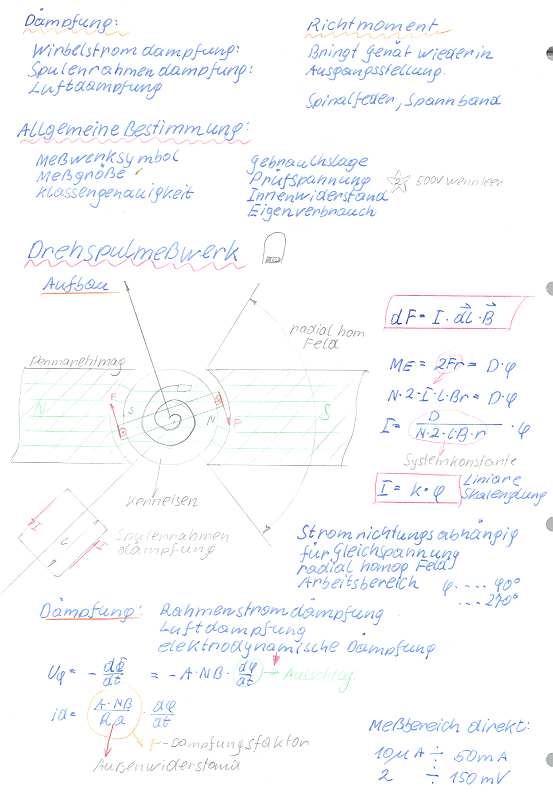 Dämpfung:
Wirbelstromdämpfung:
Spulenrahmendämpfung:
Luftdämpfung
Richtmoment
Bringt gerät wieder in
Ausgangsstellung.
Spiralfeder, Spannband
Allgemeine Bestimmung:
Meßwerksymbol
Meßgröße
Klassengenauigkeit
Gebrauchslage
Prüfspannung 500V wenn leer
Innenwiderstand
Eigenverbrauch
Drehspulmeßwerk
Aufbau
radial hom
Feld
N
S
F
S
N
F
Kerneisen
I
L
I
Spulenrahmen
dämpfung
dF = I · dl · B
ME = 2Fr = D·φ
N·2·I·l·Br = D·φ
I = D / N·2·l·B·r · φ
Systemkonstante
I = k·φ
Liniare
Skalendung
Stromrichtungsabhängig
für Gleichspannung
radial homog Feld
Arbeitsbereich φ .... 90°
... 270°
Dämpfung: Rahmenstromdämpfung
Luftdämpfung
elektrodynamische Dämpfung
Uq = - dΦ/dt = -A·NB· dφ/dt → Ausschlag
id = A·NB/Ra · dφ/dt
r - Dämpfungsfaktor
Außenwiderstand
Meßbereich direkt:
10µA ÷ 50mA
2 ÷ 150mV